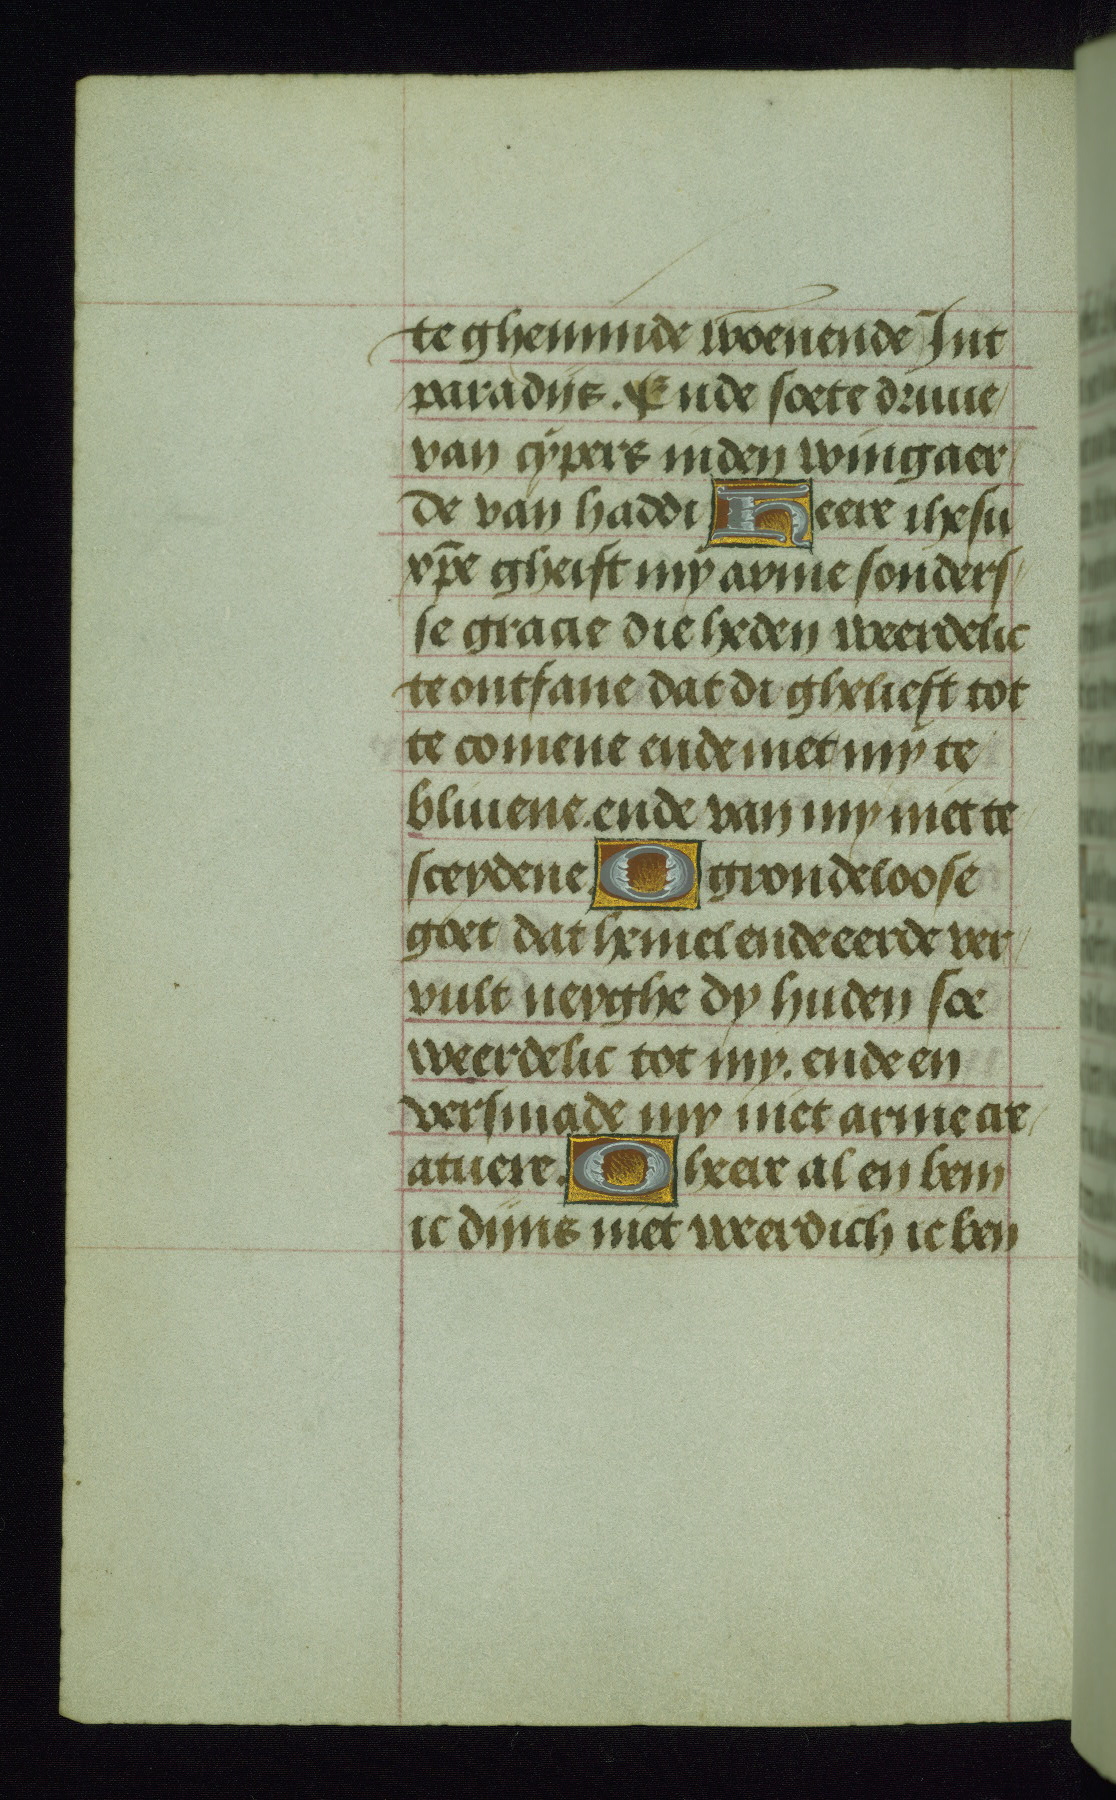 te ghemīnde woenende Int
paradijs. Ende soete druue
van cypers inden wingaer
de van haddi Heere ihesu
xp̄e gheift my arme sonders
se gracie die heden weerdelic
te ontfane dat di ghelieft tot
te comene ende met my te
bliuene. ende van my niet te
sceydene. O grondeloose
goet dat hemel ende eerde ver
vult neyghe dy huden soe
weerdelic tot my. ende en
versmade my niet arme cre
atuere. O heere al en bem
ic dijns niet weerdich ic ben